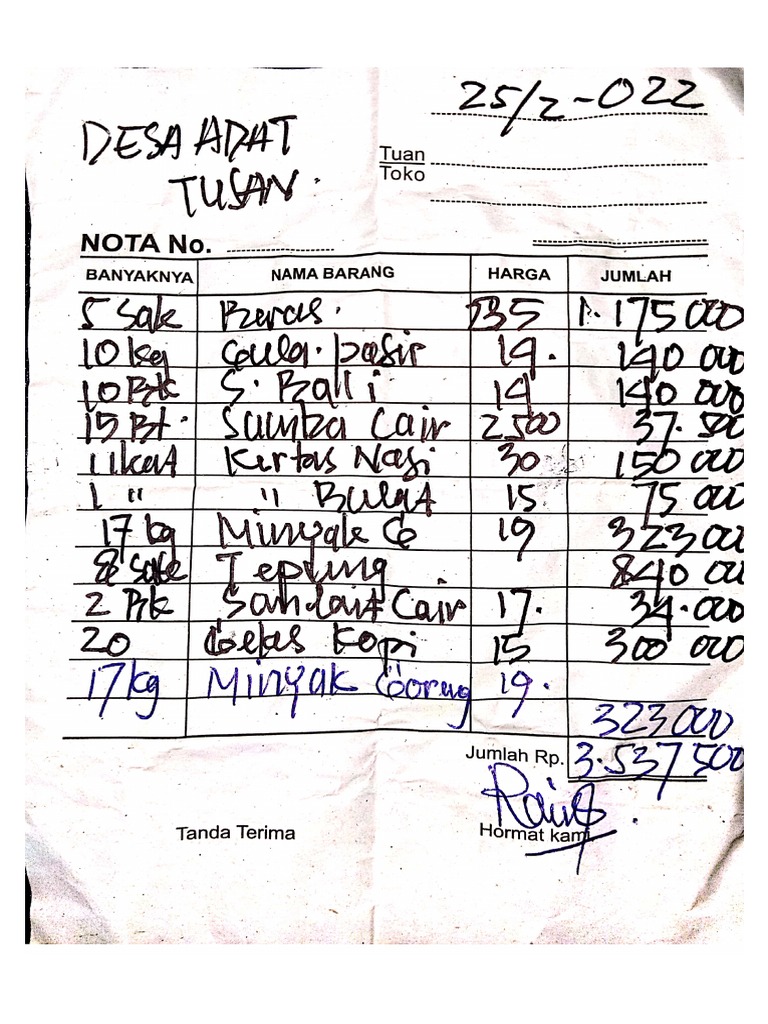 25/2-022
DESA ADAT
TUSAN.
Tuan
Toko
NOTA No.
BANYAKNYA NAMA BARANG HARGA JUMLAH
5 Sak Beras. 235 1.175 000
10 kg Gula. pasir 14. 140 000
10 Btl S. Bali 14 140 000
15 Bt. Sunba Cair 2500 37.500
1 ikat Kertas Nasi 30 150 000
1 " " Bulat 15 75 000
17 kg Minyak G 19 323 000
8 Sak Tepung 840 000
2 Pk Sunlait Cair 17. 34.000
20 Gelas Kopi 15 300 000
17 kg Minyak Goreng 19.
323 000
Jumlah Rp. 3.537 500
Tanda Terima Hormat kami